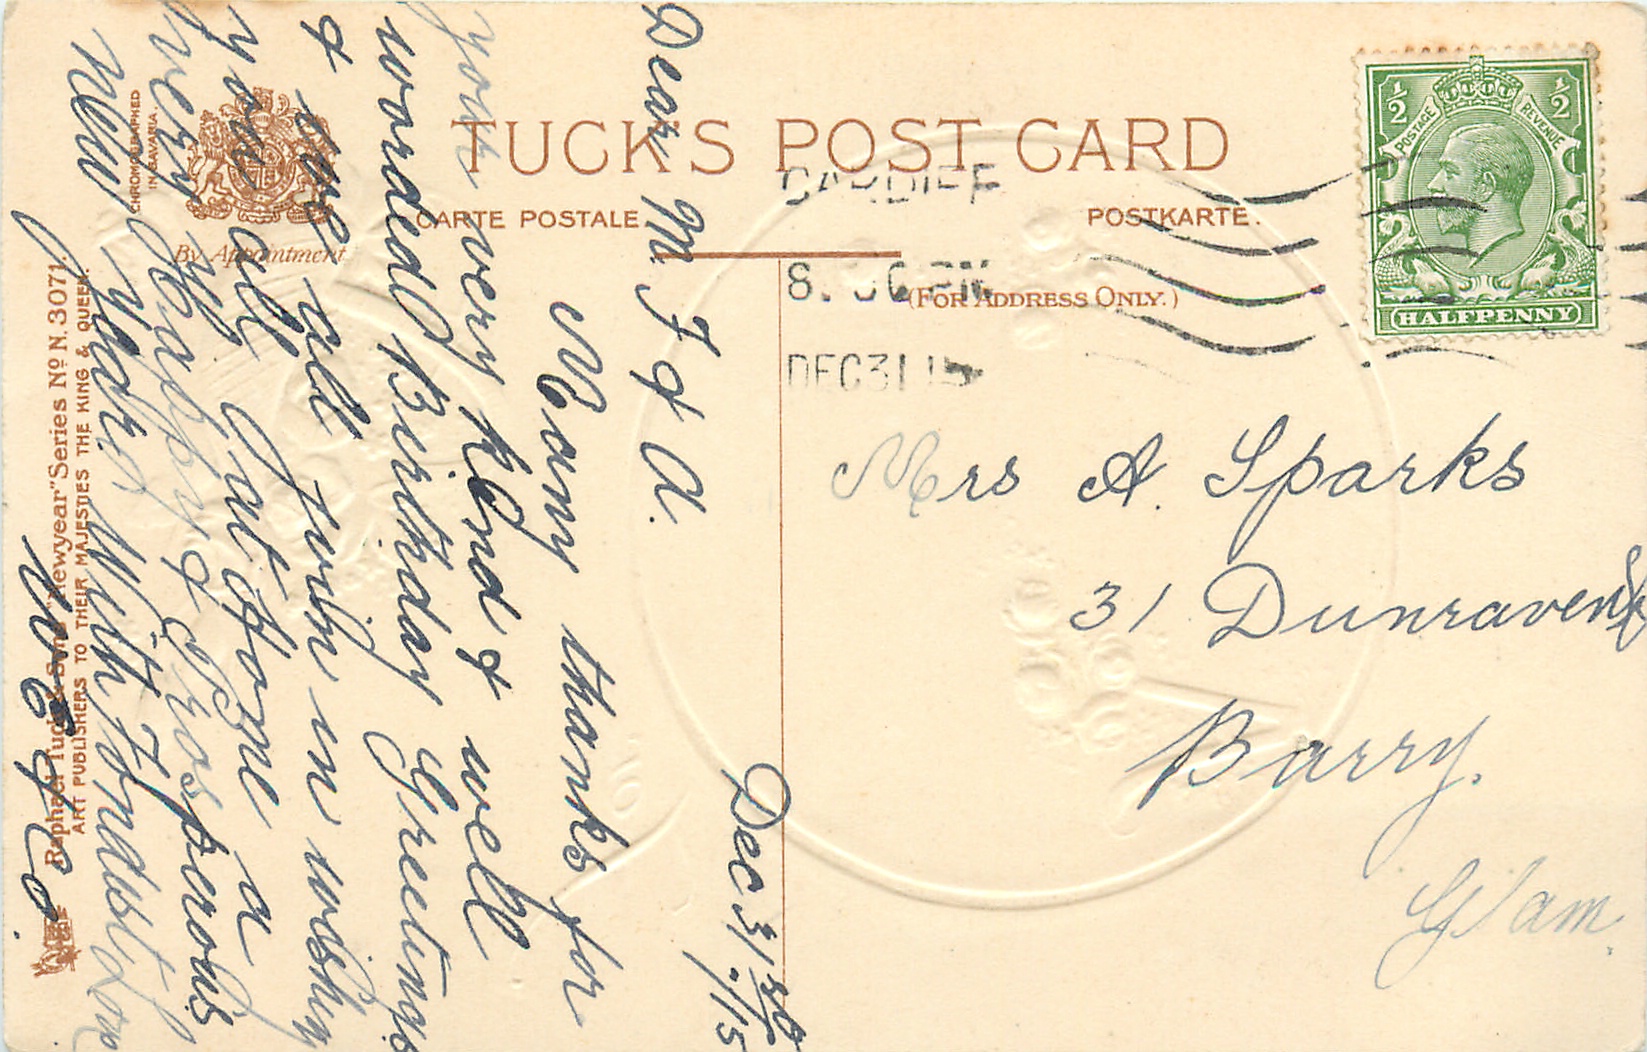 TUCK'S POST CARD
CARTE POSTALE.
POSTKARTE.
(FOR ADDRESS ONLY.)
CHROMOGRAPHED
IN BAVARIA.
By Appointment
Raphael Tuck & Sons' "Newyear" Series No N. 3071.
ART PUBLISHERS TO THEIR MAJESTIES THE KING & QUEEN.
CARDIFF
DEC 31 15
½ ½
POSTAGE REVENUE
HALFPENNY
Mrs A. Sparks
31 Dunraven St
Barry.
Glam.
Dec 31st /15
Dear M. F & A.
Many thanks for
your very kind & well
worded Birthday Greetings
& we all join in wishing
you all at Home a
very Happy & Prosperous
New Year With Fondest Love